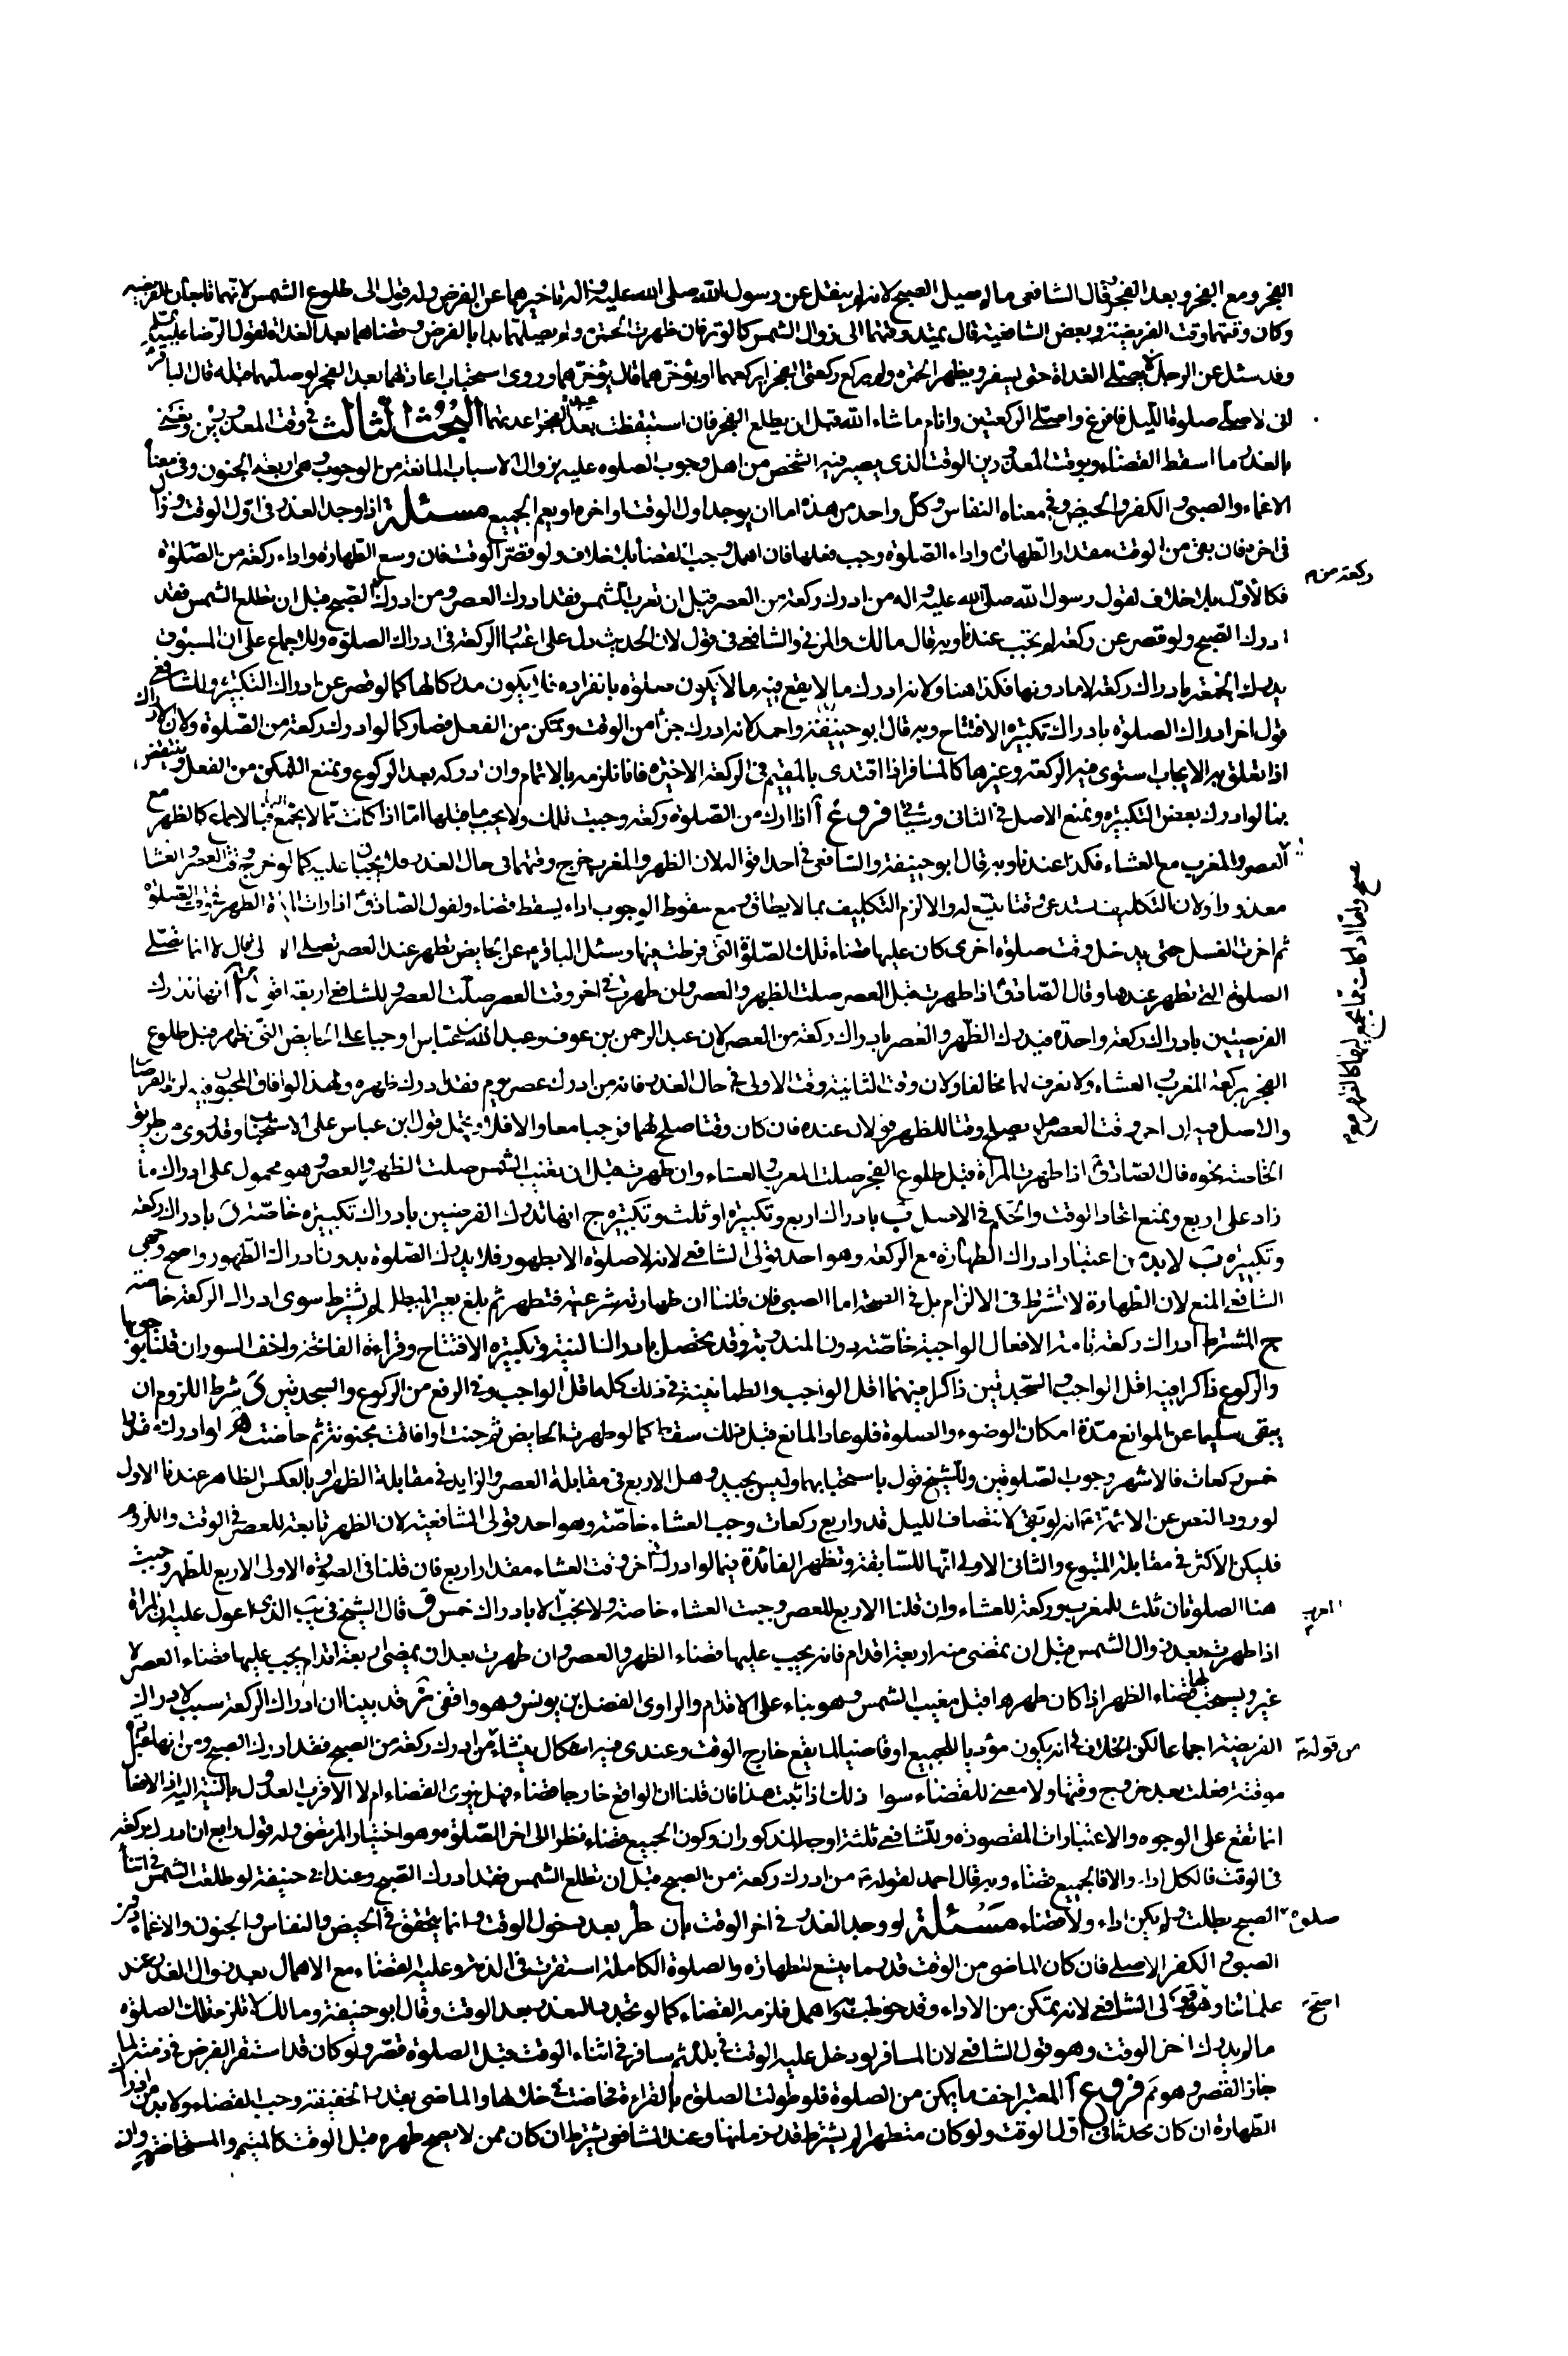 الفجر ومع الفجر وبعد الفجر وقال الشافعي ما لم يصل الصبح لانه لم ينقل عن رسول الله صلى الله عليه واله تاخيرهما عن الفرض وله قول الى طلوع الشمس لانهما تابعان للفريضة
وكان وقتهما وقت الفريضة وبعض الشافعية قال يمتد وقتهما الى زوال الشمس كالوتر فان ظهرت الحمرة ولم يصلهما بدا بالفرض وقضاهما بعد الغداة لقول الرضا عليه السلم
وقد سئل عن الرجل لا يصلي الغداة حتى يسفر ويظهر الحمرة ولم يركع ركعتي الفجر ايركعهما او يؤخرهما قال يؤخرهما وروى استحباب اعادتهما بعد الفجر لو صلاهما قبله قال الباقر
انى لاصلي صلوة الليل فافرغ واصلي الركعتين وانام ما شاء الله قبل ان يطلع الفجر فان استيقظت بعد الفجر اعدتهما البحث الثالث في وقت المعذورين ونعني
بالعذر ما اسقط القضاء وبوقت المعذورين الوقت الذي يصير فيه الشخص من اهل وجوب الصلوه عليه بزوال الاسباب المانعة من الوجوب وهي اربعة الجنون وفي معناه
الاغماء والصبي والكفر والحيض وفي معناه النفاس وكل واحد من هذه اما ان يوجد اول الوقت او اخره او يعم الجميع مسئلة اذا وجد العذر في اول الوقت وزال
في اخره فان بقى من الوقت مقدار الطهارة واداء الصلوة وجب فعلها فان اهمل وجب القضا بلا خلاف ولو قصر الوقت فان وسع الطهارة واداء ركعة من الصلوة
فكالاول بلا خلاف لقول رسول الله صلى الله عليه واله من ادرك ركعة من العصر قبل ان تغرب الشمس فقد ادرك العصر ومن ادرك الصبح قبل ان تطلع الشمس فقد
ركعة من م
ادرك الصبح ولو قصر عن ركعة لم تجب عندنا وبه قال مالك والمزني والشافعي في قول لان الحديث دل على اعتبار الركعة في ادراك الصلوة وللاجماع على ان المسبوق
يدرك الجمعة بادراك ركعة لا ما دونها فكذا هنا ولانه ادرك ما لا يقع فيه ما لا يكون صلوة بانفراده فلا يكون مدركا لها كما لو قصر عن ادراك التكبيرة وللشافعي
قول اخر ادراك الصلوة بادراك تكبيرة الافتتاح وبه قال ابو حنيفة واحمد لانه ادرك جزأ من الوقت وتمكن من الفعل فصار كما لو ادرك ركعة من الصلوة ولان الادراك
اذا تعلق به الايجاب استوى فيه الركعة وغيرها كالمسافر اذا اقتدى بالمقيم في الركعة الاخيرة فانا نلزمه بالاتمام وان ادركه بعد الركوع ونمنع التمكن من الفعل وينتقض
بما لو ادرك بعض التكبيرة ونمنع الاصل في الثاني وسياتي فروع آ اذا ادرك من الصلوة ركعة وجبت تلك ولا يجب ما قبلها اما اذا كانت مما لا يجمع فبالاجماع كالظهر مع
العصر والمغرب مع العشاء فكذا عندنا وبه قال ابو حنيفة والشافعي في احد اقواله لان الظهر والمغرب خرج وقتهما في حال العذر فلا يجبا عليه كما لو خرج وقت العصر والعشا
صبح واما اذا كانت مما يجمع اليها كالظهر م
معذورا ولان التكليف يستدعي وقتا يتسع له والا لزم التكليف بما لا يطاق ومع سقوط الوجوب اداء يسقط قضاء ولقول الصادق اذا رات المراة الطهر في وقت الصلوة
ثم اخرت الغسل حتى يدخل وقت صلوة اخرى كان عليها قضاء تلك الصلوة التي فرطت فيها وسئل الباقر عن الحايض تطهر عند العصر تصلي الاولى قال لا انما تصلي
الصلوة التي تطهر عندها وقال الصادق اذا طهرت قبل العصر صلت الظهر والعصر وان طهرت في اخر وقت العصر صلت العصر وللشافعي اربعة اقوال آ انها تدرك
الفريضتين بادراك ركعة واحدة فيدرك الظهر والعصر بادراك ركعة من العصر لان عبد الرحمن بن عوف وعبد الله بن عباس اوجبا على الحايض التي تطهر قبل طلوع
الفجر بركعة المغرب والعشاء ولا نعرف لهما مخالفا ولان وقت الثانية وقت الاولى في حال العذر فانه من ادرك عصر يوم فقد ادرك ظهره ولهذا لو افاق المجنون فيه لزمه الفرضان
والاصل فيه ان اخر وقت العصر هل يصلح وقتا للظهر فعندنا لا وعنده فان كان وقتا صلح لهما فوجبا معا والا فلا ويحتمل قول ابن عباس على الاستحباب وقد روى من طريق
الخاصة نحوه قال الصادق اذا طهرت المراة قبل طلوع الفجر صلت المغرب والعشاء وان طهرت قبل ان تغيب الشمس صلت الظهر والعصر وهو محمول على ادراك ما
زاد على اربع ونمنع اتحاد الوقت والحكم في الاصل ب بادراك اربع وتكبيرة او ثلث وتكبيرة ج انها تدرك الفرضين بادراك تكبيرة خاصة د بادراك ركعة
وتكبيرة ب لا بد من اعتبار ادراك الطهارة مع الركعة وهو احد قولي الشافعي لانه لا صلوة الا بطهور فلا يدرك الصلوة بدون ادراك الطهور واصح وجهي
الشافعي المنع لان الطهارة لا تشترط في الالزام بل في الصحة اما الصبي فان قلنا ان طهارته شرعية فتطهر ثم بلغ بغير المبطل لم يشترط سوى ادراك الركعة خاصة
ج المشترط ادراك ركعة تامة الافعال الواجبة خاصة دون المندوبة وقد يحصل بادراك النية وتكبيرة الافتتاح وقراءة الفاتحة واخف السور ان قلنا بوجوبها
والركوع ذاكرا فيه اقل الواجب والسجدتين ذاكرا فيهما اقل الواجب والطمانينة في ذلك كله اقل الواجب وفي الرفع من الركوع والسجدتين د شرط اللزوم ان
يبقى سليما عن الموانع مدة امكان الوضوء والصلوة فلو عاد المانع قبل ذلك سقط كما لو طهرت الحايض ثم جنت او افاقت مجنونة ثم حاضت ه لو ادرك قدر
خمس ركعات فالاشهر وجوب الصلوتين وللشيخ قول باستحبابهما وليس بجيد وهل الاربع في مقابلة العصر والزايد في مقابلة الظهر او بالعكس الظاهر عندنا الاول
لورود النص عن الائمة ع انه لو بقى لانتصاف الليل قدر اربع ركعات وجب العشاء خاصة وهو احد قولي الشافعية لان الظهر تابعة للعصر في الوقت واللزوم
فليكن الاكثر في مقابلة المتبوع والثاني الاولى انها للسابقة وتظهر الفائدة فيما لو ادرك اخر وقت العشاء مقدار اربع فان قلنا في الصورة الاولى الاربع للظهر وجبت
هنا الصلوتان ثلث للمغرب وركعة للعشاء وان قلنا الاربع للعصر وجبت العشاء خاصة ولا يجب الا بادراك خمس و قال الشيخ في يب الذي اعول عليه ان المراة
اذا طهرت بعد زوال الشمس قبل ان تمضي منه اربعة اقدام فانه يجب عليها قضاء الظهر والعصر وان طهرت بعد ان يمضي اربعة اقدام يجب عليها قضاء العصر لا
غير ويستحب لها قضاء الظهر اذا كان طهرها قبل مغيب الشمس وهو بناء على الاقدام والراوي الفضل بن يونس وهو واقفي ز قد بينا ان ادراك الركعة سبب لادراك
الفريضة اجماعا لكن الخلاف في انه يكون مؤديا للجميع او قاضيا لما يقع خارج الوقت وعندي فيه اشكال ينشاء من ادرك ركعة من الصبح فقد ادرك الصبح ومن انها عبادة
من قوله ع
موقتة فعلت بعد خروج وقتها ولا معنى للقضاء سوا ذلك اذا ثبت هذا فان قلنا ان الواقع خارجا قضاء فهل ينوي القضاء ام لا الاقرب العدول بالنية اليه اذ الافعال
انما تقع على الوجوه والاعتبارات المقصودة وللشافعي ثلثة اوجه المذكوران وكون الجميع قضاء نظرا الى اخر الصلوة وهو اختيار المرتضى وله قول رابع ان ادرك ركعة
في الوقت فالكل اداء والا فالجميع قضاء وبه قال احمد لقوله ع من ادرك ركعة من الصبح قبل ان تطلع الشمس فقد ادرك الصبح وعند ابي حنيفة لو طلعت الشمس في اثناء
صلوة الصبح بطلت ولم يكن اداء ولا قضاء مسئلة لو وجد العذر في اخر الوقت بان طرء بعد دخول الوقت وانما يتحقق في الحيض والنفاس والجنون والاغماء دون
الصبي والكفر الاصلي فان كان الماضي من الوقت قدر ما يتسع للطهارة والصلوة الكاملة استقرت في الذمة وعليه القضاء مع الاهمال بعد زوال العذر عند
علمائنا وهو اصح قولي الشافعي لانه تمكن من الاداء وقد خوطب به واهمل فلزمه القضاء كما لو تجدد العذر بعد الوقت وقال ابو حنيفة ومالك لا تلزم تلك الصلوة
ما لم يدرك اخر الوقت وهو قول الشافعي لان المسافر لو دخل عليه الوقت في بلده ثم سافر في اثناء الوقت قبل الصلوة قصر ولو كان قد استقر الفرض في ذمته لما
جاز القصر وهو مم فروع آ المعتبر اخف ما يمكن من الصلوة فلو طولت الصلوة بالقراءة فحاضت في خلالها والماضي بقدر الخفيفة وجب القضاء ولا بد من ادراك
الطهارة ان كان محدثا في اول الوقت ولو كان متطهرا لم يشترط قدر زمانها وعند الشافعي يشترط ان كان ممن لا يصح طهره قبل الوقت كالمتيمم والمستحاضة وان